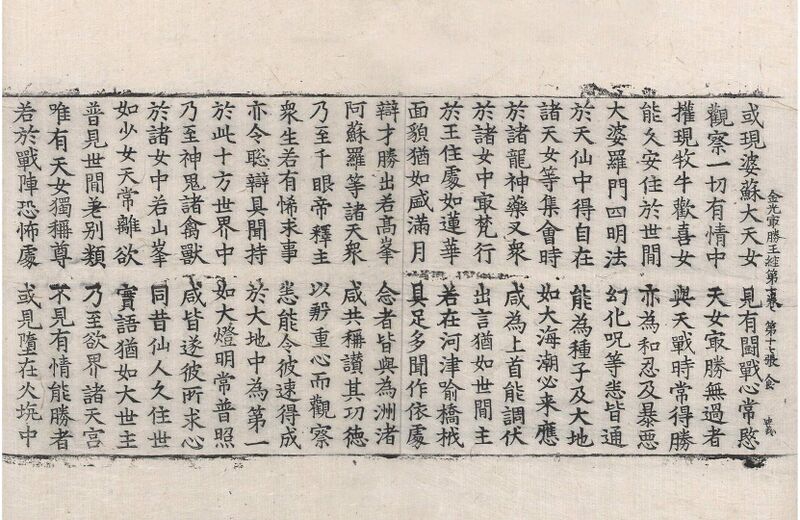 金光㝡勝王經第七卷 第十七張 金
或現婆蘇大天女 見有鬪戰心常愍
觀察一切有情中 天女㝡勝無過者
權現牧牛歡喜女 與天戰時常得勝
能久安住於世間 亦為和忍及暴惡
大婆羅門四明法 幻化呪等悉皆通
於天仙中得自在 能為種子及大地
諸天女等集會時 如大海潮必来應
於諸龍神藥叉衆 咸為上首能調伏
於諸女中㝡梵行 出言猶如世間主
於王住處如蓮華 若在河津喻橋栰
面貌猶如盛滿月 具足多聞作依處
辯才勝出若高峯 念者皆與為洲渚
阿蘇羅等諸天衆 咸共稱讃其功德
乃至千眼帝釋主 以慇重心而觀察
衆生若有悕求事 悉能令彼速得成
亦令聦辯具聞持 於大地中為第一
於此十方世界中 如大燈明常普照
乃至神鬼諸禽獸 咸皆遂彼所求心
於諸女中若山峯 同昔仙人久住世
如少女天常離欲 實語猶如大世主
普見世間差別類 乃至欲界諸天宮
唯有天女獨稱尊 不見有情能勝者
若於戰陣恐怖處 或見墮在火坑中